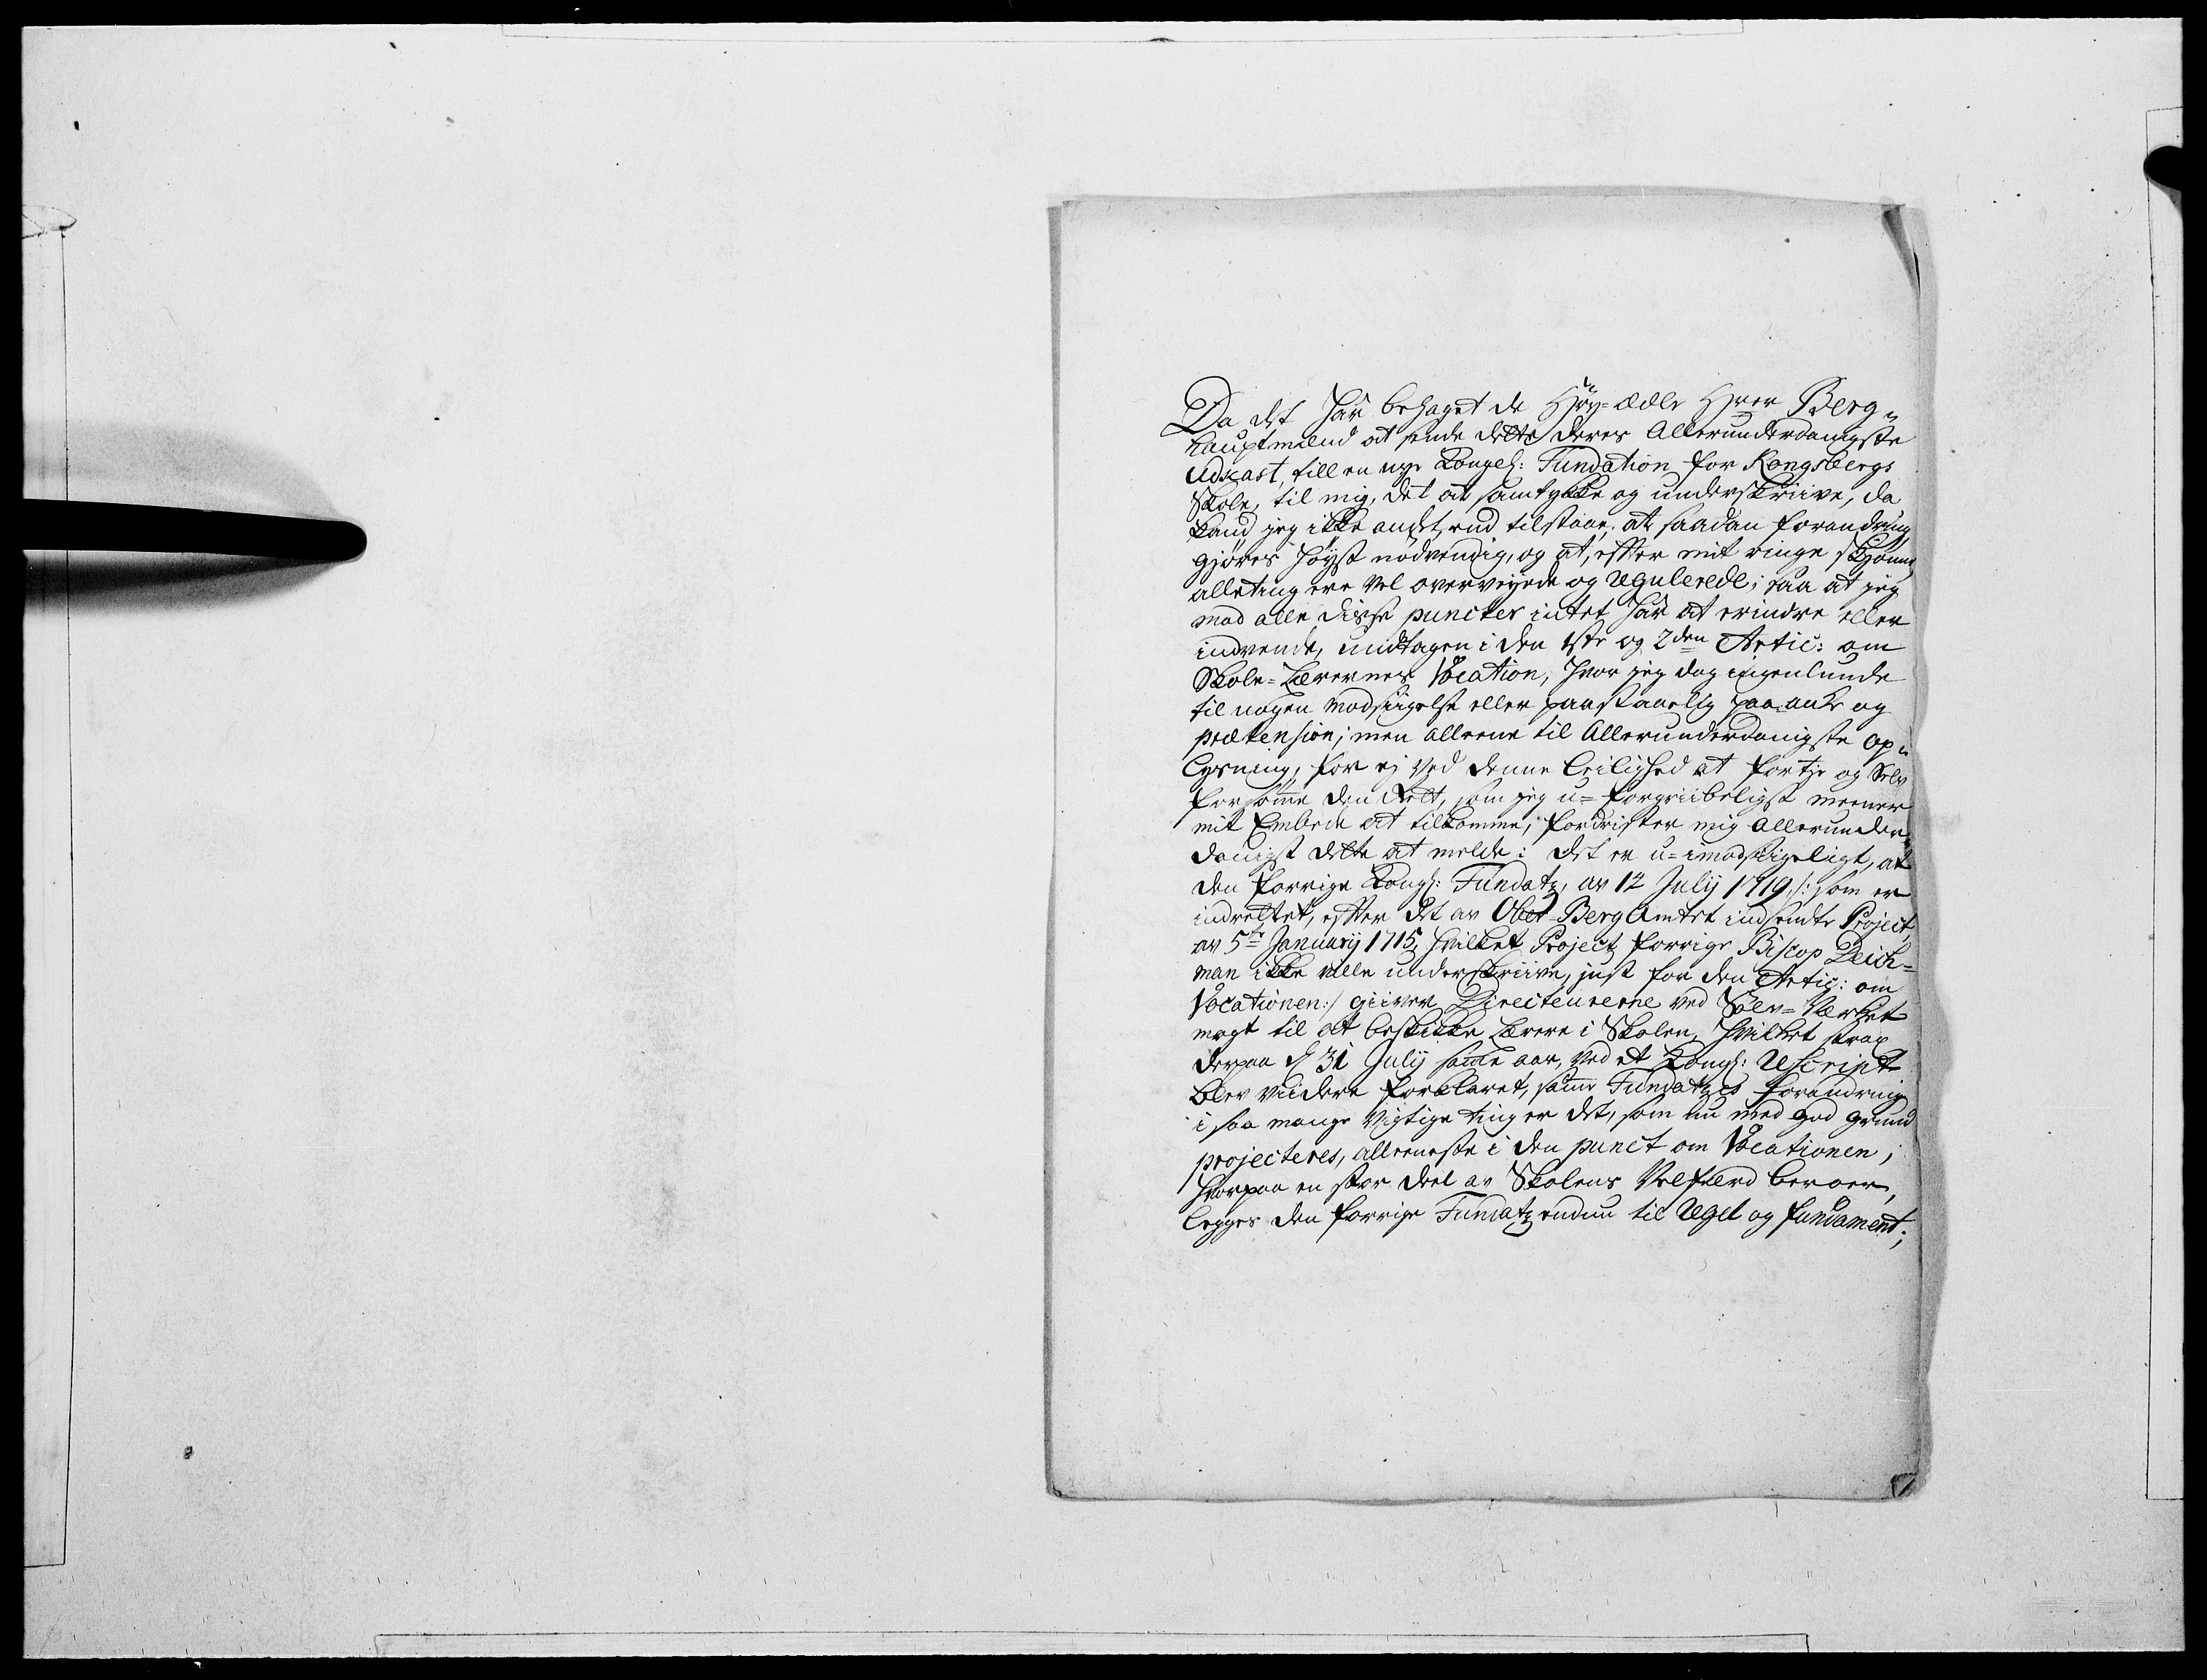 Da det har behaget de Høy-ædle Herrer Berg-
hauptmænd at sende dette deres Allerunderdanigste
Udkast, till en nye Kongel: Fundation for Kongsbergs
Skole, til mig, det at samtykke og underskriive, da
kand jeg ikke andet, end tilstaae, at saadan forandring
gjøres høyst nødvendig, og at, effter mit ringe skjønne,
alleting ere vel overveyede og Regulerede; saa at jeg
mod alle disse puncter intet har at erindre eller
indvende, undtagen i den 1ste og 2den Artic: om
Skole-Lærernes Vocation, hvor jeg dog ingenlunde
til nogen modsiigelse eller paastaaelig paaanke og
prætension; men alleene til Allerunderdanigste Op-
lysning, for ej ved denne leilighed at fortje og selv
forsømme den Rett, som jeg u-forgriibeligst meener
mit Embede at tilkomme, fordrister mig Allerunder-
danigst dette at melde: det er u-imodsiigeligt, at
den forrige Kongl: Fundatz, av 12 Julij 1719 /: som er
indrettet, effter det av Ober-Berg Amtet indsendte Project
av 5te Januarij 1715, hvilket Project forrige Biscop Deich-
man ikke ville underskriive, just for den Artic: om
Vocationen :/ giiver Directeurerne ved Sølv-Værket
magt til at beskikke Lærere i Skolen, hvilket strax
derpaa d 31 Julij samme aar, ved et Kongl: Rescript
blev viidere forklaret, samme Fundatzes forandring
i saa mange vigtige ting er det, som nu med god grund
projecteres, alleeneste i den punct om Vocationen,
hvorpaa en stor deel av Skolens Velferd beroer,
legges den forrige Fundatz endnu til Regel og fundament;